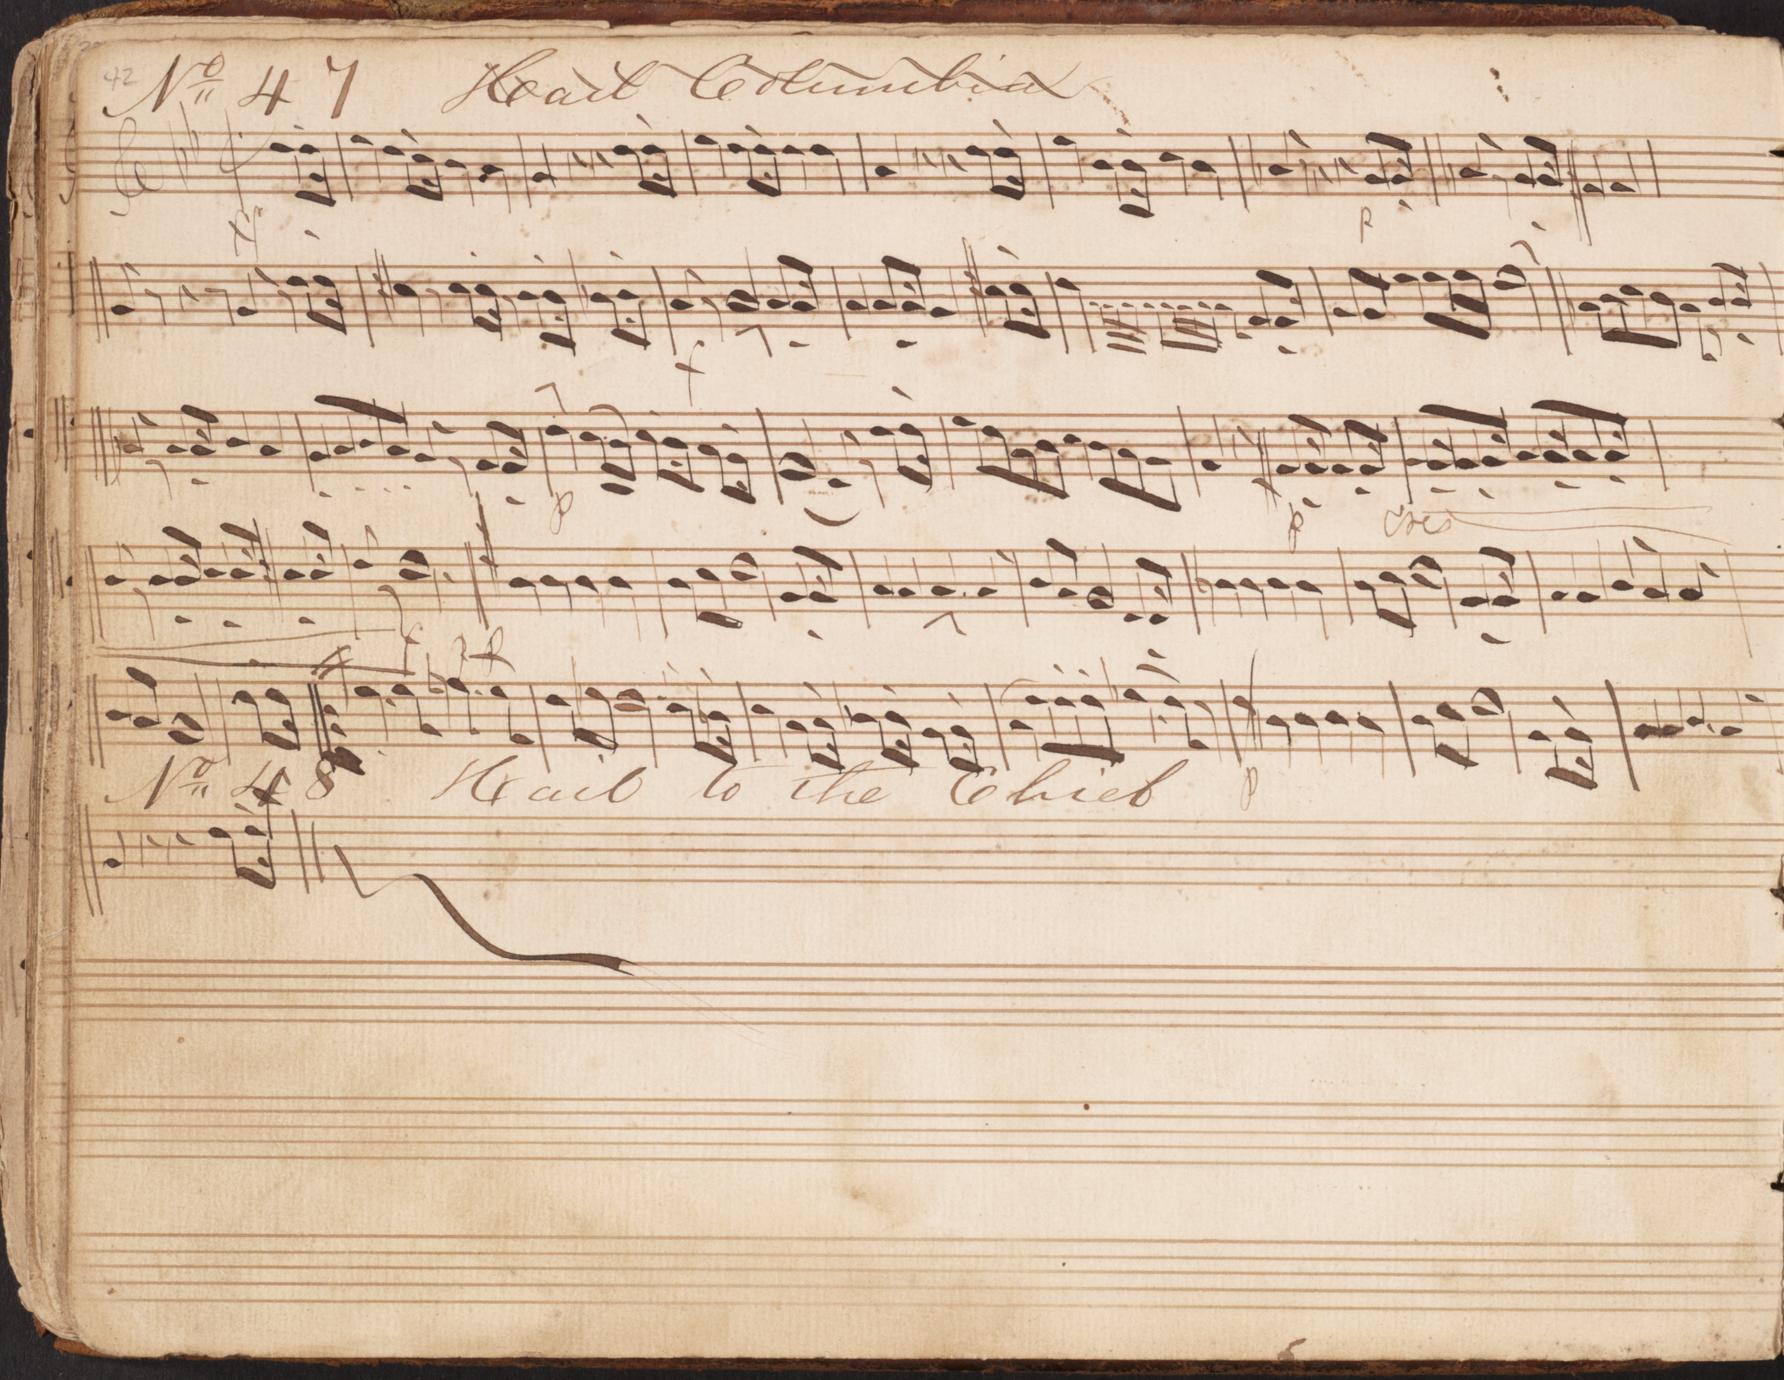 42
Nº 47 Hail Columbia
p
p
p
cres
Nº 48 Hail to the Chief
p